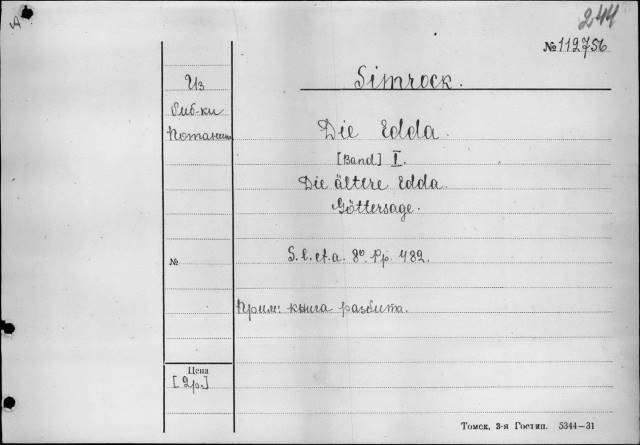 A
244
№ 112756
Из
биб-ки
Потанина
Simrock.
Die Edda.
[Band] I.
Die ältere Edda.
Göttersage.
№
S. l. et. a. 8º. Pp. 482.
Прим: книга разбита.
Цена
[2р.]
Томск, 3-я Гостип. 5344—31